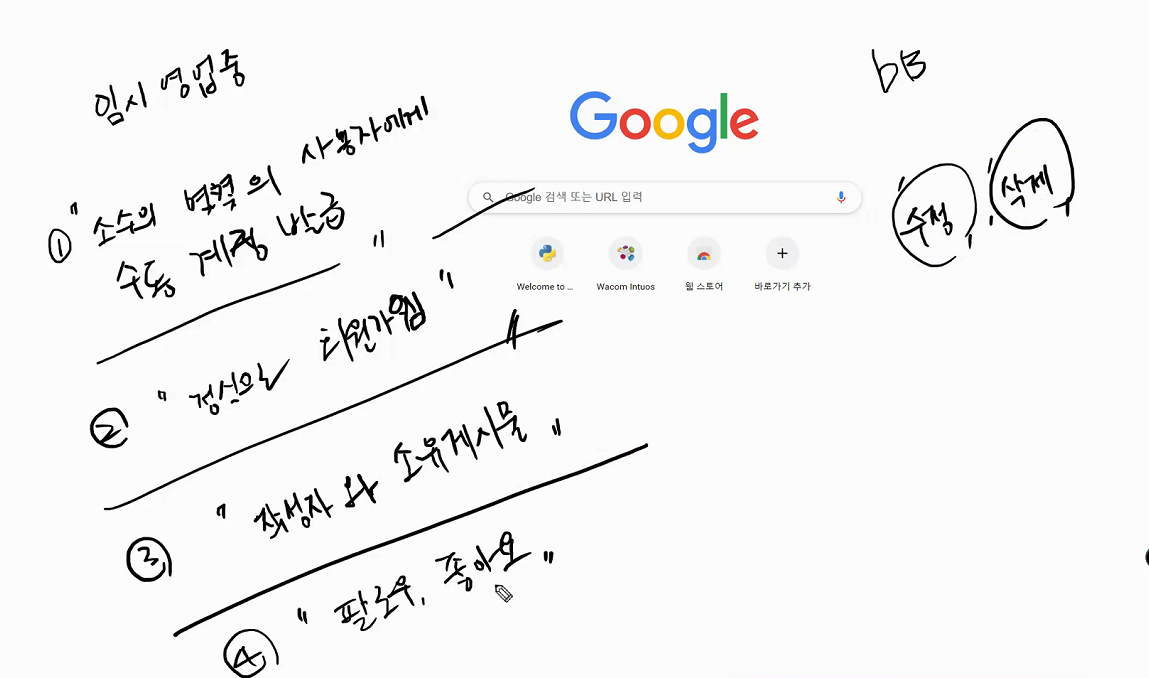 임시 영업중
① "소수의 몇몇의 사용자에게
수동 계정 발급"
② "정식으로 회원가입"
③ "작성자와 소유게시물"
④ "팔로우, 좋아요"
Google
Google 검색 또는 URL 입력
Welcome to ...
Wacom Intuos
웹 스토어
바로가기 추가
"수정" "삭제"